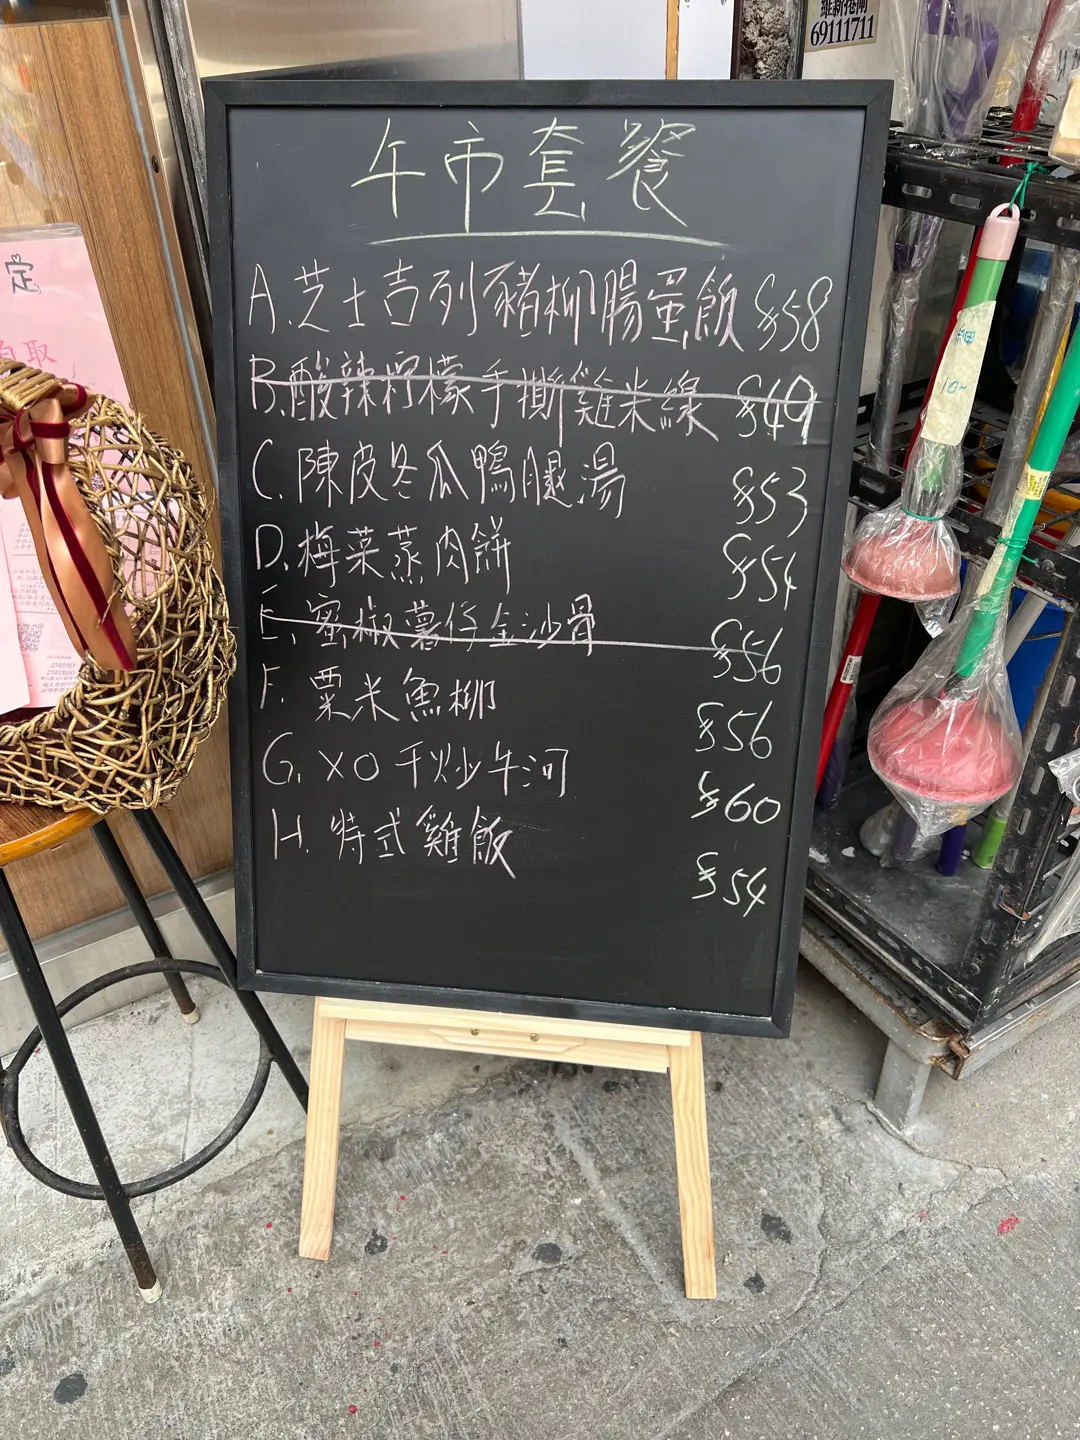 維新捲閘
69111711
午市套餐
A.芝士吉列豬柳腸蛋飯 $58
B.酸辣檸檬手撕雞米線 $49
C.陳皮冬瓜鴨腿湯 $53
D.梅菜蒸肉餅 $54
E.蜜椒薯仔金沙骨 $56
F.粟米魚柳 $56
G.XO干炒牛河 $60
H.特式雞飯 $54
定
取
10-